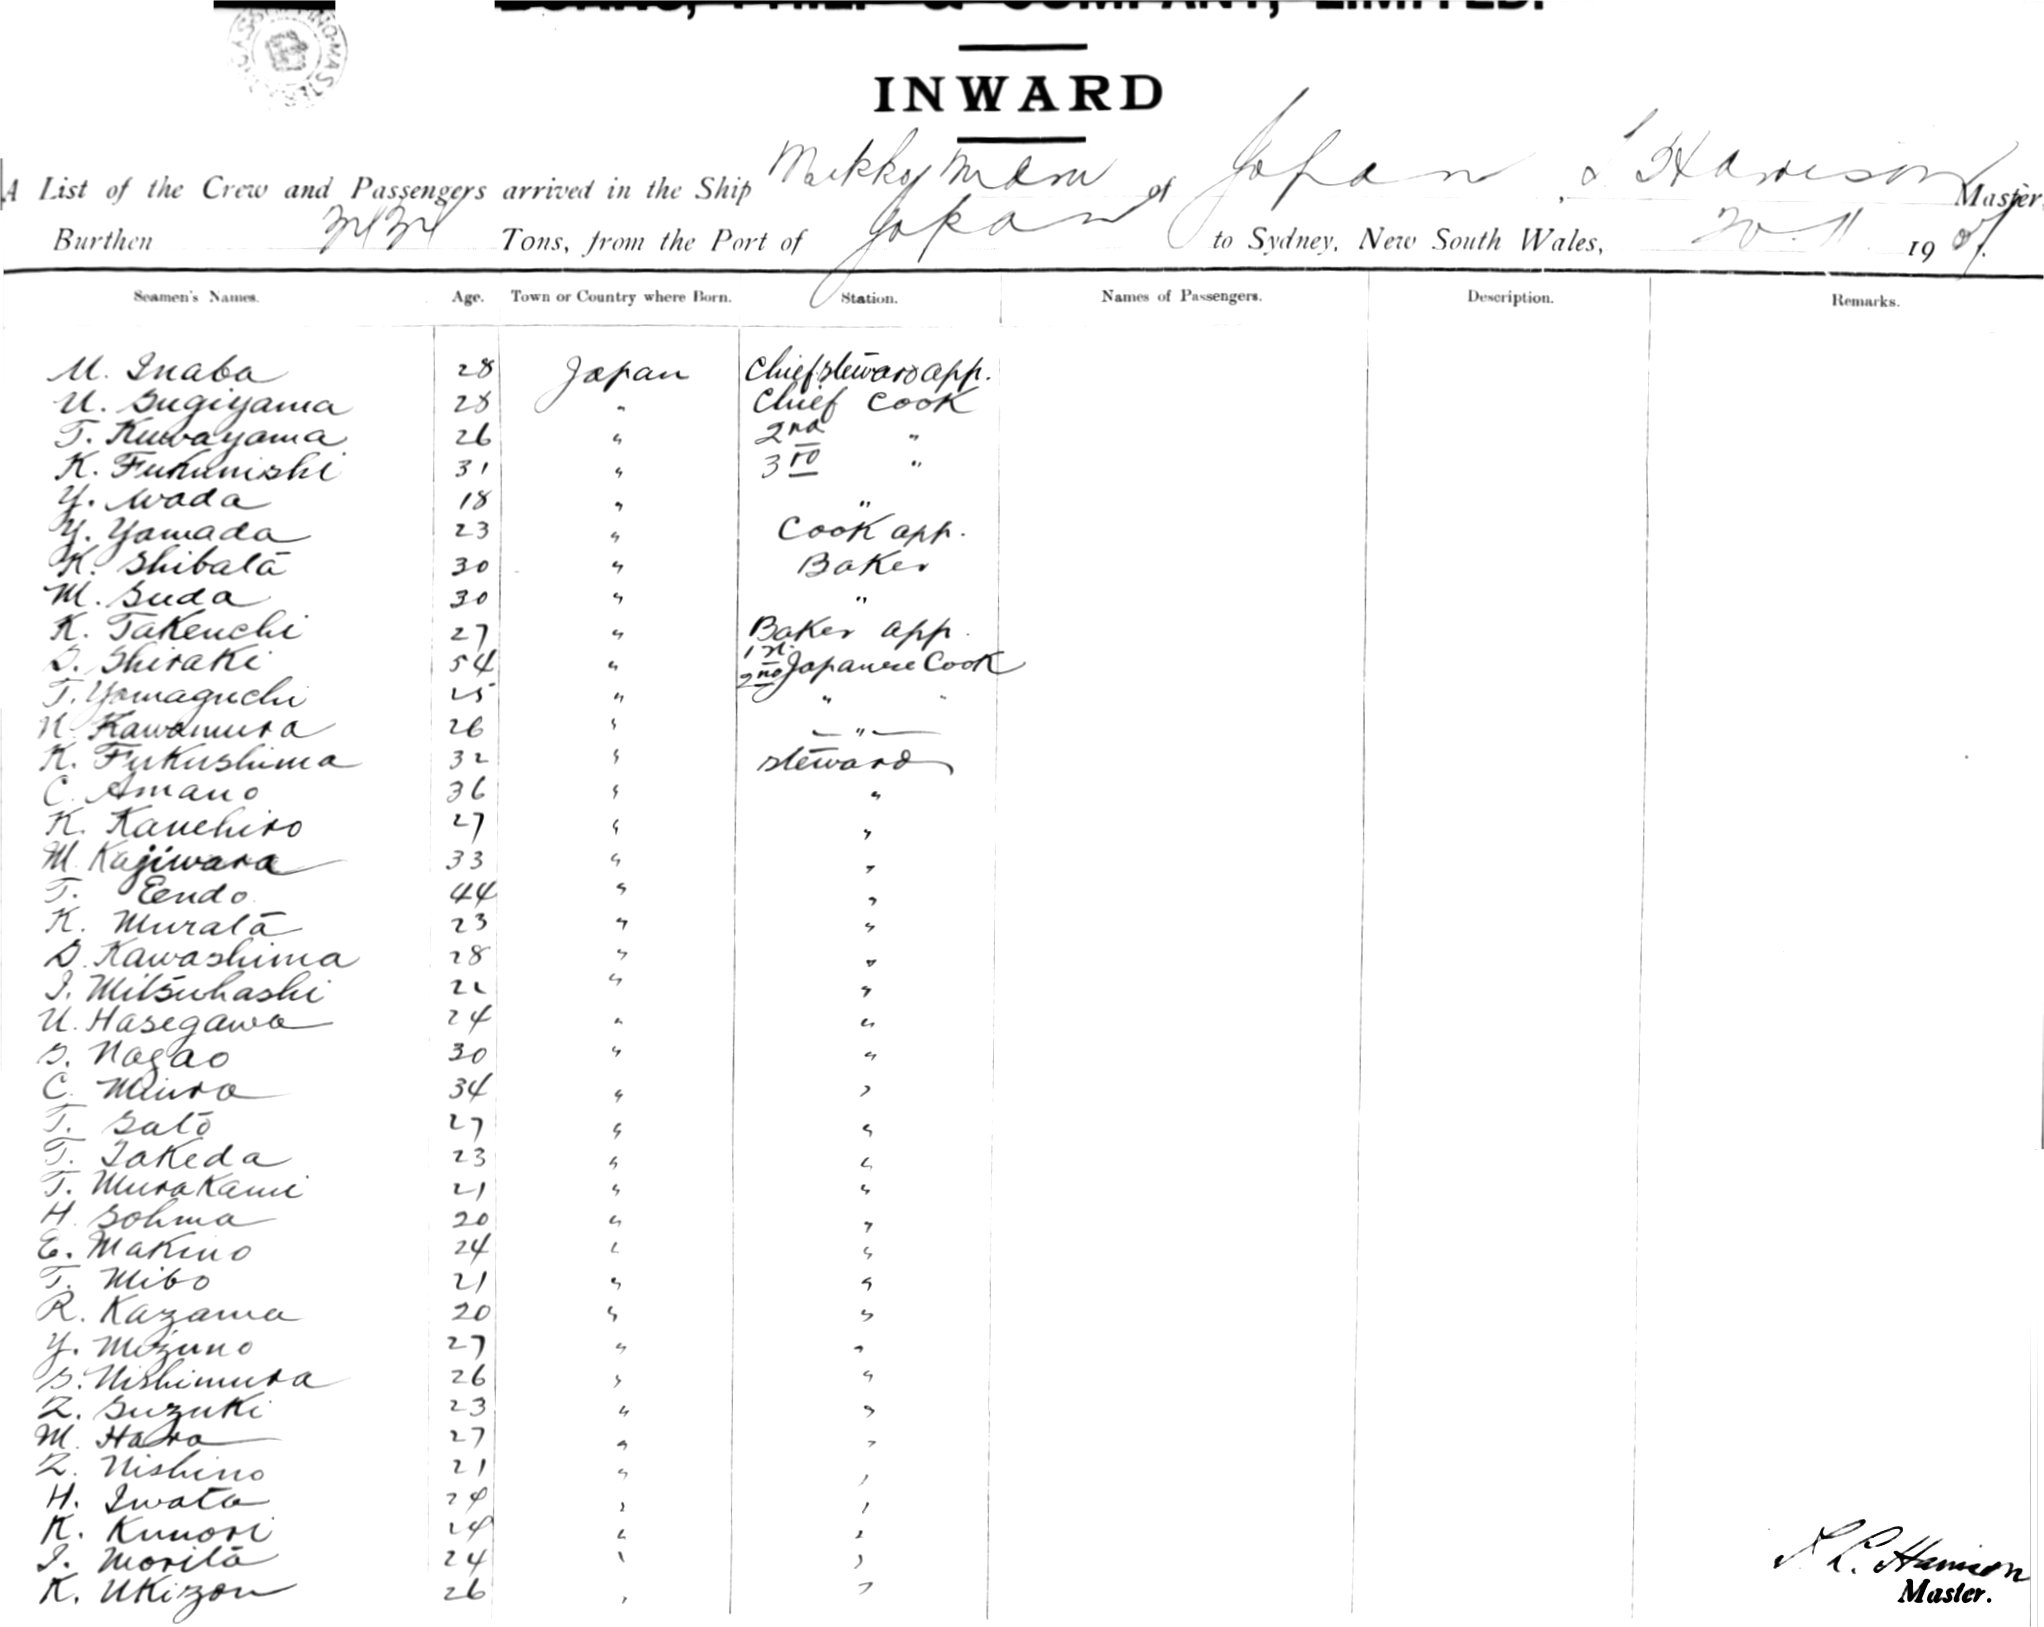 BURNS, PHILP & COMPANY, LIMITED.
INWARD
A List of the Crew and Passengers arrived in the Ship Nikko Maru of Japan, Harrison Master,
Burthen Tons, from the Port of Japan to Sydney, New South Wales, 20.11 1907.
Seamen's Names. Age. Town or Country where Born. Station. Names of Passengers. Description. Remarks.
M. Inaba 28 Japan Chief steward app.
U. Sugiyama 28 " Chief Cook
T. Kuwayama 26 " 2nd "
K. Fukunishi 31 " 3rd "
Y. Wada 18 " "
Y. Yamada 23 " Cook app.
K. Shibata 30 " Baker
M. Suda 30 " "
K. Takeuchi 27 " Baker app.
S. Shiraki 54 " 1st. Japanese Cook
T. Yamaguchi 25 " 2nd " "
N. Kawamura 26 " "
K. Fukushima 32 " steward
C. Amano 36 " "
K. Kanehiro 27 " "
M. Kajiwara 33 " "
T. Eendo 44 " "
K. Murata 23 " "
S. Kawashima 28 " "
I. Mitsuhashi 22 " "
U. Hasegawa 24 " "
S. Nagao 30 " "
C. Miura 34 " "
T. Sato 27 " "
T. Takeda 23 " "
T. Murakami 21 " "
H. Sohma 20 " "
E. Makino 24 " "
T. Mibo 21 " "
R. Kazama 20 " "
Y. Mizuno 27 " "
S. Nishimura 26 " "
Z. Suzuki 23 " "
M. Hara 27 " "
Z. Nishino 21 " "
H. Iwata 24 " "
K. Kunori 24 " "
I. Morita 24 " "
K. Ukizon 26 " "
Harrison
Master.